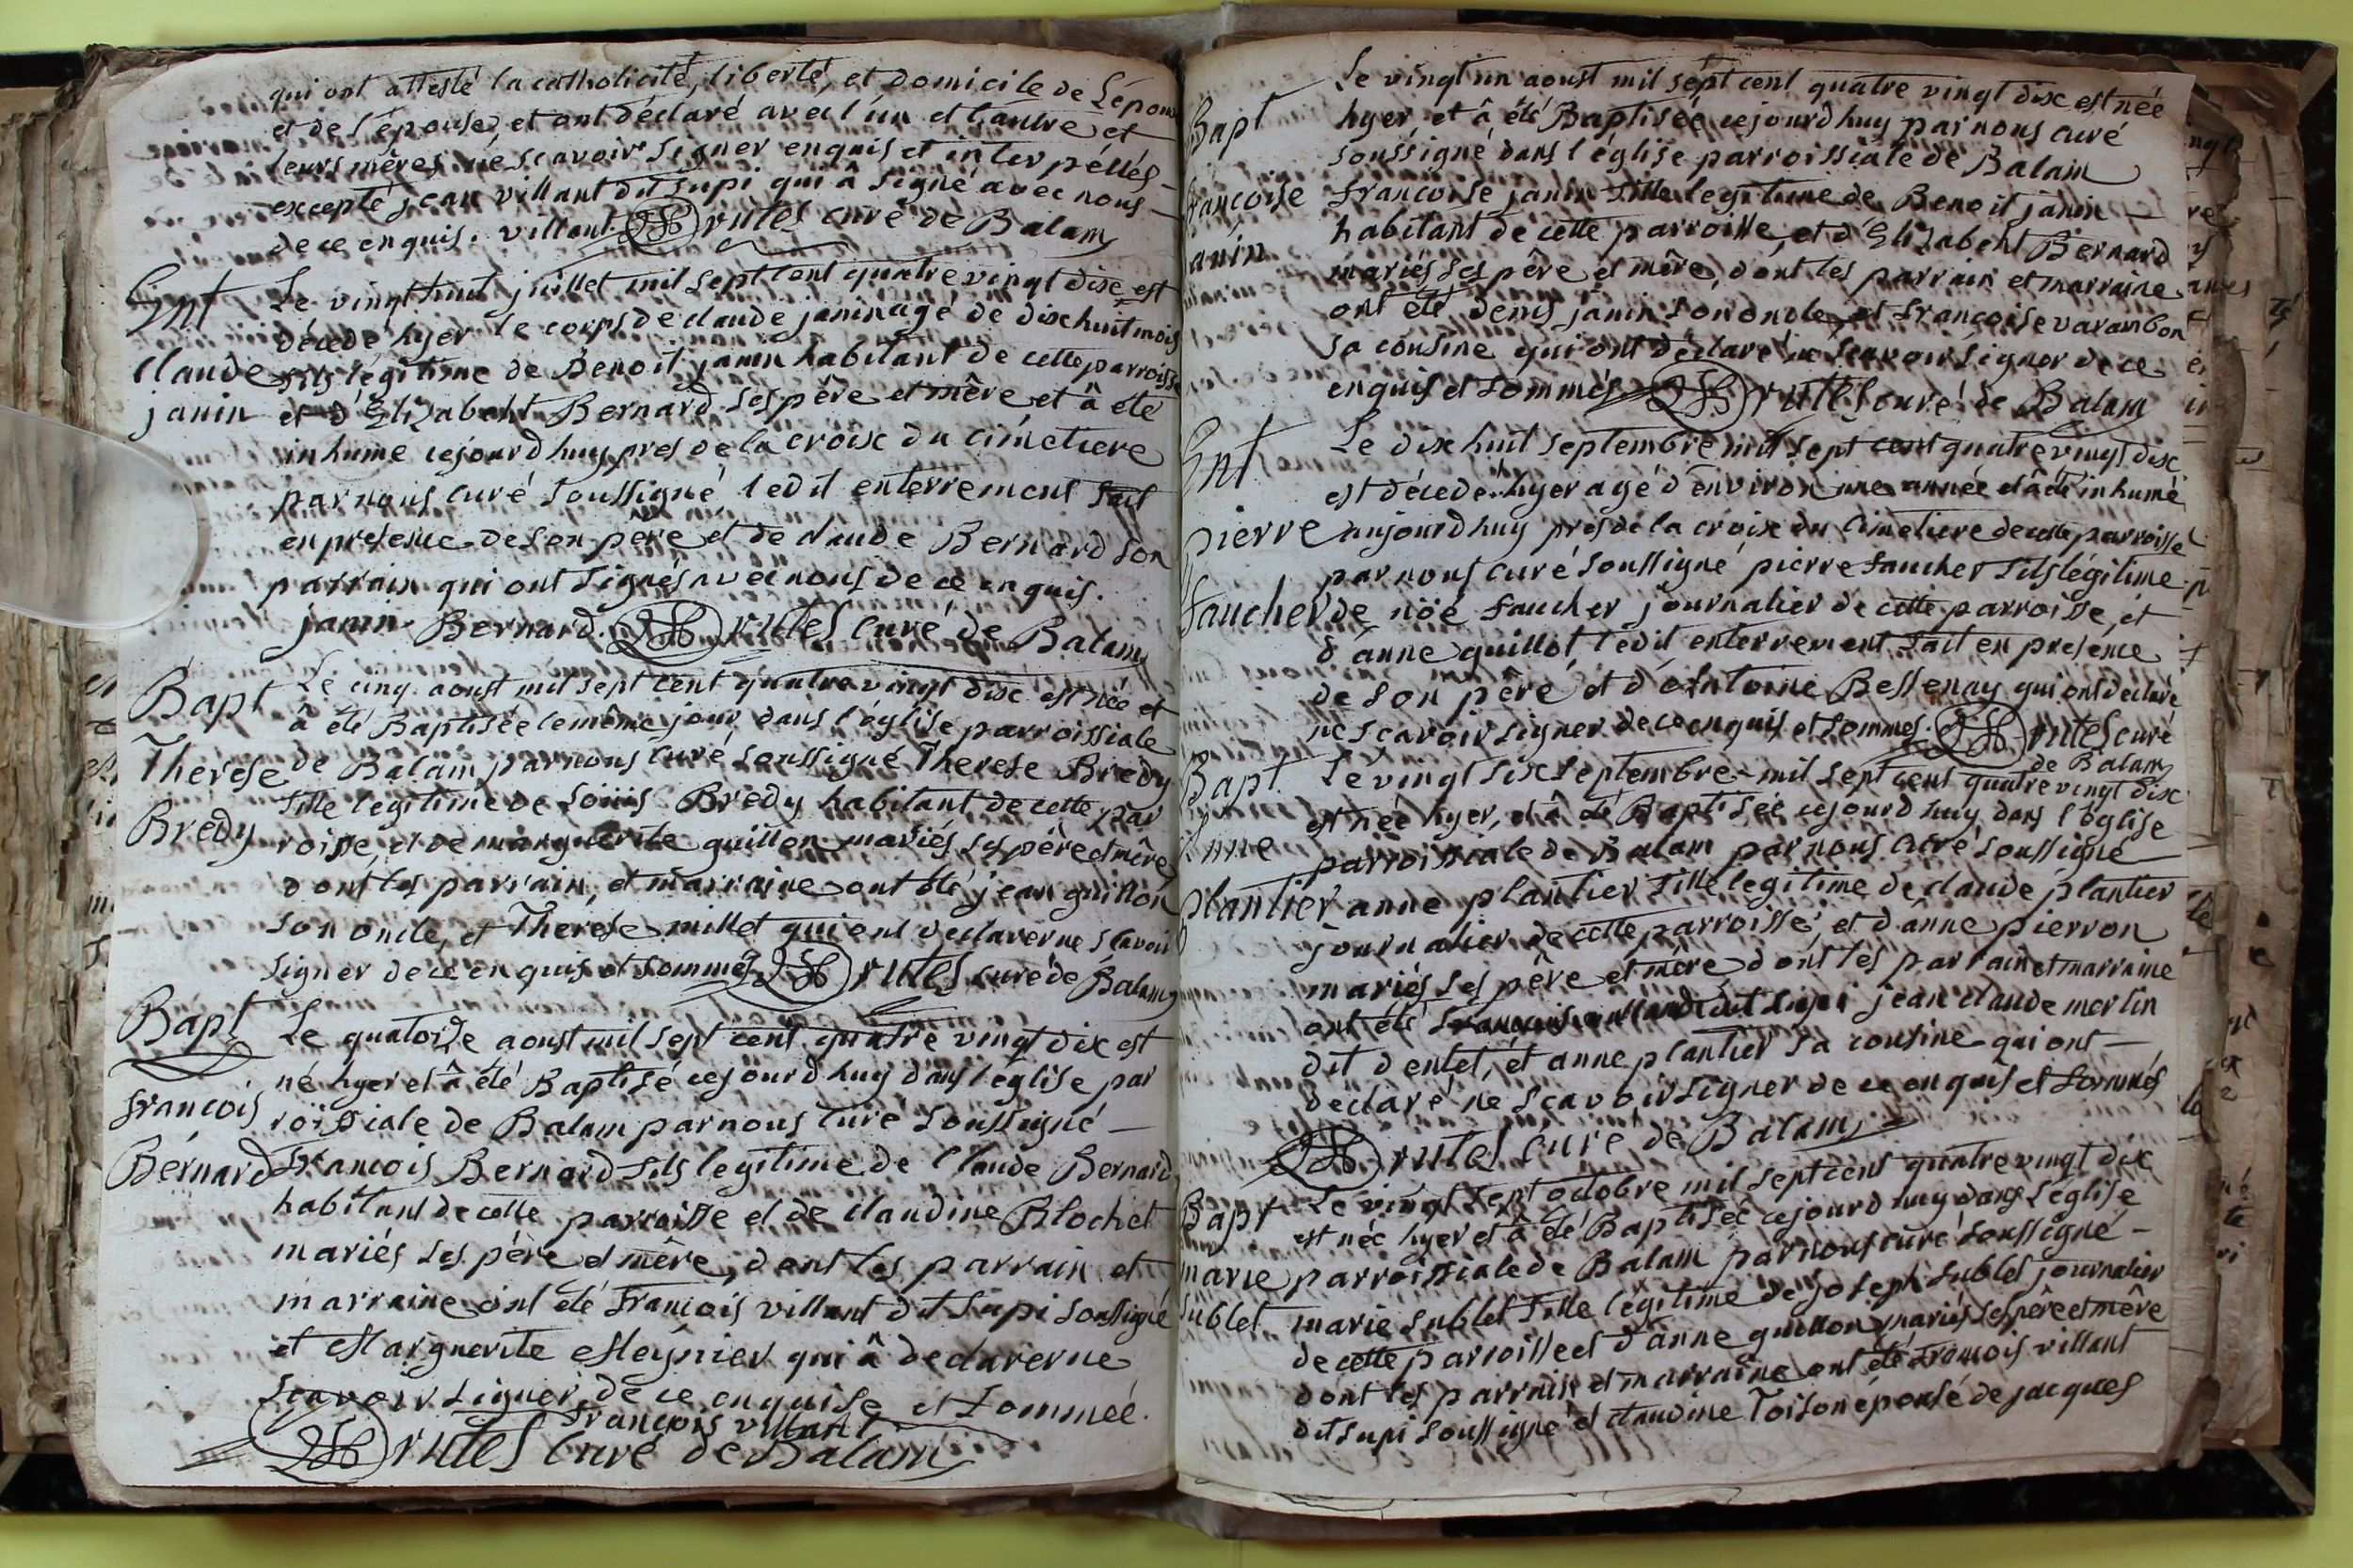 qui ont attesté la catholicité, liberté, et domicile de Lépoux
et de l'épouse, et ont déclaré avec l'un et l'autre et
leurs mêres ne scavoir signer enquis et interpéllés -
excepté jean villant dit supi qui â signé avec nous -
de ce enquis. villant. Brutel curé de Balam
Ent
Claude
janin
Le vingt huit juillet mil sept cent quatre vingt dix est
décédé hyer le corps de claude janin agé de dix huit mois
fils légitime de Benoit janin habitant de cette parroisse
et d'Elizabeht Bernard ses pêre et mêre et â été
inhumé cejourd'huy pres de la croix du cimetiere
par nous curé soussigné, ledit enterrement fait
en presence de son pêre et de claude Bernard son
parrain qui ont signés avec nous de ce enquis.
janin Bernard. Brutel curé de Balam
Bapt
Therese
Bredy
Le cinq aoust mil sept cent quatre vingt dix est née et
â été Baptisée le même jour dans l'église parroissiale
de Balam par nous curé soussigné Therese Bredy
fille legitime de Loüis Bredy habitant de cette par
roisse, et de marguerite guillon mariés ses père et mêre
dont les parrain, et marraine ont été jean guillon
son oncle, et Therese millet qui ont declaré ne scavoir
signer de ce enquis et sommés Brutel curé de Balam
Bapt
francois
Bernard
Le quatorze aoust mil sept cent quatre vingt dix est
né hyer et â été Baptisé cejourd'huy dans l'église par
roissiale de Balam par nous curé soussigné —
francois Bernard fils legitime de Claude Bernard
habitant de cette parroisse et de claudine Blochet
mariés ses père et mêre, dont les parrain et
marraine ont été francois villant dit supi soussigné
et Marguerite Meynier qui â declaré ne
scavoir signer de ce enquise et sommée.
francois villant
Brutel Curé de Balam
Bapt
francoise
janin
Le vingt un aoust mil sept cent quatre vingt dix est née
hyer, et â été Baptisée cejourd'huy par nous curé
soussigné dans l'église parroissiale de Balam
francoise janin fille legitime de Benoit janin —
habitant de cette parroisse, et d'Elizabeht Bernard
mariés ses pêre et mêre, dont les parrain et marraine
ont été denis janin son oncle, et francoise varambon
sa cousine qui ont déclaré ne scavoir signer de ce
enquis et sommés Brutel curé de Balam
Ent
pierre
faucher
Le dix huit septembre mil sept cent quatre vingt dix
est décédé hyer agé d'environ une année et â été inhumé
aujourd'huy près de la croix du cimetiere de cette parroisse
par nous curé soussigné pierre faucher fils légitime
de nöe faucher journalier de cette parroisse, et
d'anne guillot ledit enterrement fait en presence
de son pêre et d'Antoine Bessenay qui ont declaré
ne scavoir signer de ce enquis et sommés. Brutel curé
de Balam
Bapt
Anne
plantier
Le vingt six septembre mil sept cent quatre vingt dix
est née hyer, et â été Baptisée cejourd'huy dans l'église
parroissiale de Balam par nous curé soussigné
anne plantier fille legitime de claude plantier
journalier de cette parroisse, et d'anne pierron
mariés ses pêre et mère dont les parrain et marraine
ont été jean claude merlin
dit dentet, et anne plantier sa cousine qui ont —
déclaré ne scavoir signer de ce enquis et sommés
Brutel curé de Balam
Bapt
marie
sublet
Le vingt sept octobre mil sept cent quatre vingt dix
est née hyer et â été Baptisée cejourd'huy dans l'église
parroissiale de Balam par nous curé soussigné -
marie sublet fille légitime de joseph sublet journalier
de cette parroisse et d'anne guillon mariés ses pêre et mêre
dont les parrain et marraine ont été francois villant
dit supi soussigné et claudine Toison épouse de jacques